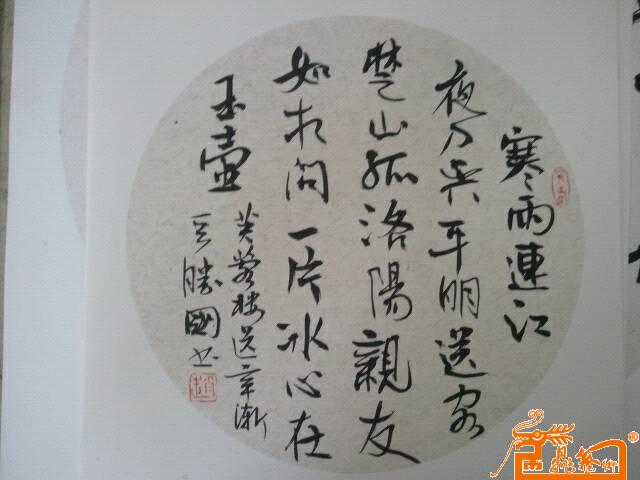 寒雨連江
夜入吳平明送客
楚山孤洛陽親友
如相问一片冰心在
玉壶
芙蓉楼送辛渐
吴勝國书